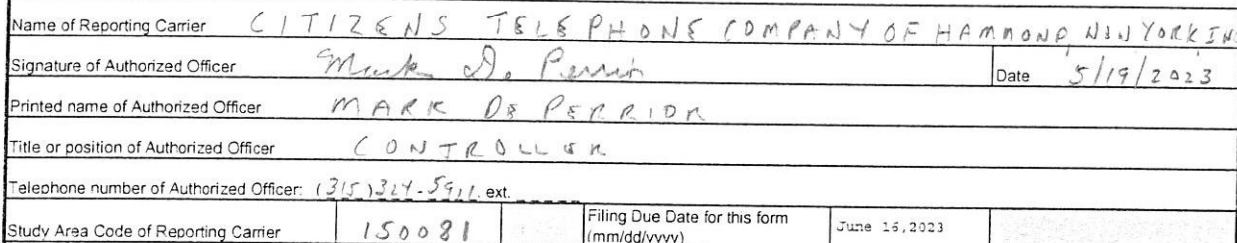 Name of Reporting Carrier CITIZENS TELEPHONE COMPANY OF HAMMOND NEW YORK INC
Signature of Authorized Officer Mark De Perrior Date 5/19/2023
Printed name of Authorized Officer MARK DE PERRIOR
Title or position of Authorized Officer CONTROLLER
Telephone number of Authorized Officer: (315)324-5911. ext.
Study Area Code of Reporting Carrier 150081 Filing Due Date for this form (mm/dd/yyyy) June 16,2023